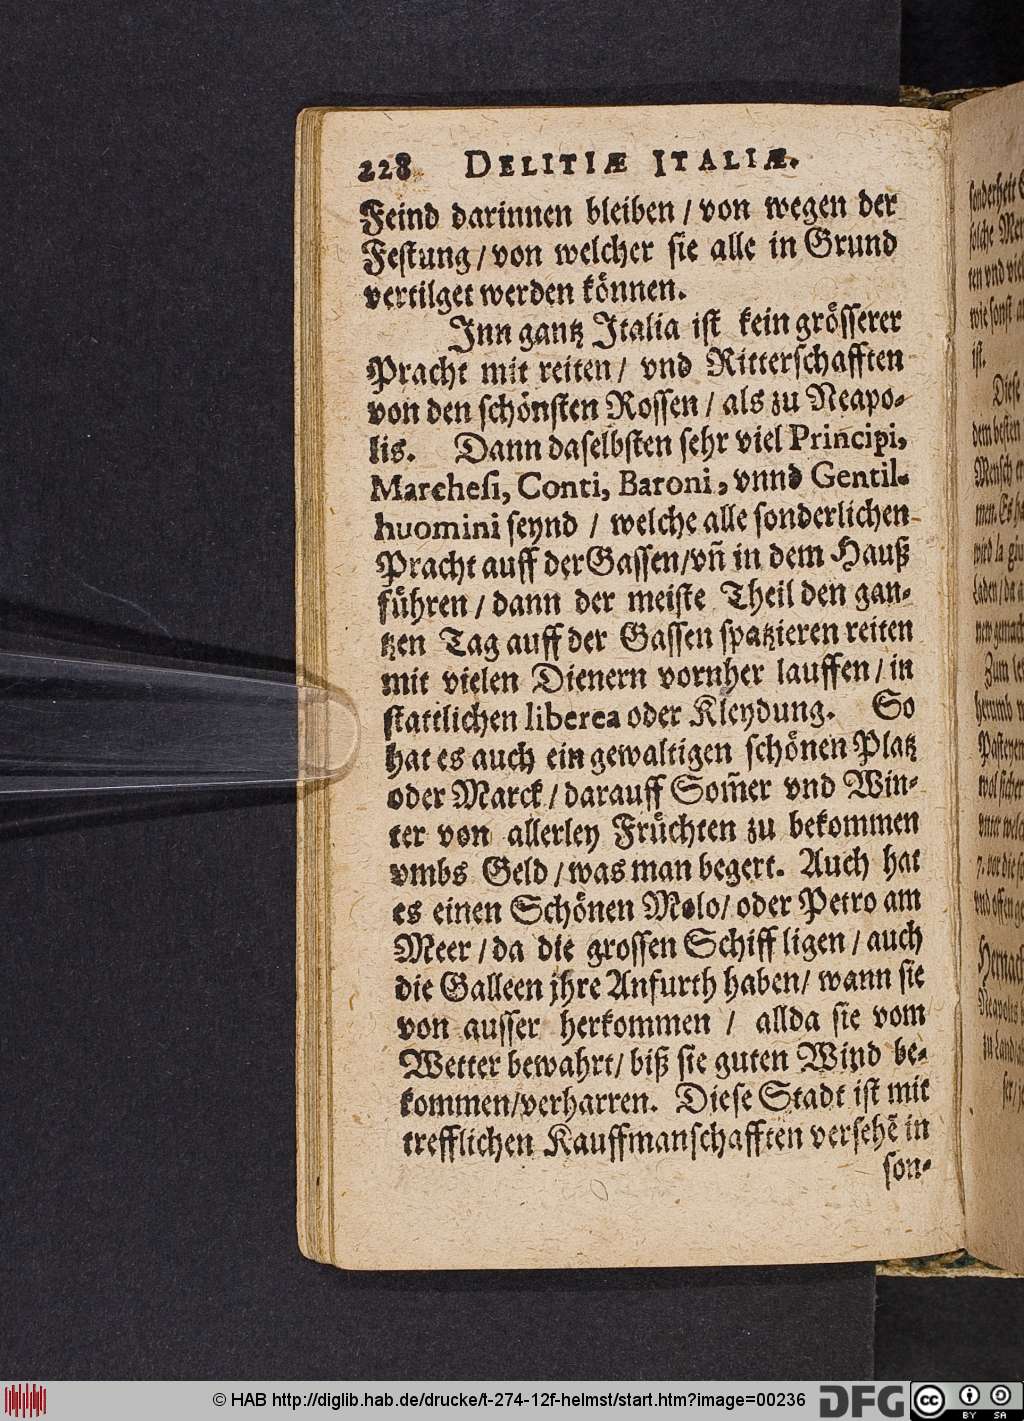 228 DELITIÆ ITALIÆ.
Feind darinnen bleiben / von wegen der
Festung / von welcher sie alle in Grund
vertilget werden können.
Jnn gantz Jtalia ist kein grösserer
Pracht mit reiten / vnd Ritterschafften
von den schönsten Rossen / als zu Neapo-
lis. Dann daselbsten sehr viel Principi,
Marchesi, Conti, Baroni, vnnd Gentil-
huomini seynd / welche alle sonderlichen
Pracht auff der Gassen/vñ in dem Hauß
führen / dann der meiste Theil den gan-
tzen Tag auff der Gassen spatzieren reiten
mit vielen Dienern vornher lauffen / in
stattlichen liberea oder Kleydung. So
hat es auch ein gewaltigen schönen Platz
oder Marck / darauff Som̃er vnd Win-
ter von allerley Früchten zu bekommen
vmbs Geld / was man begert. Auch hat
es einen Schönen Molo/ oder Petro am
Meer / da die grossen Schiff ligen / auch
die Galleen jhre Anfurth haben/ wann sie
von ausser herkommen / allda sie vom
Wetter bewahrt/ biß sie guten Wind be-
kommen/verharren. Diese Stadt ist mit
trefflichen Kauffmanschafften versehẽ in
son-
sonderheit
solche
ten vnd
wie sonst
ist.
Diese
dem besten
Mensch
men. Es
wird la
Laden / da
new gemach
Zum
herumb
Pasteyen
wol sicher
vnd offen
Hernach
Neapolis
© HAB http://diglib.hab.de/drucke/t-274-12f-helmst/start.htm?image=00236
DFG
cc
BY SA